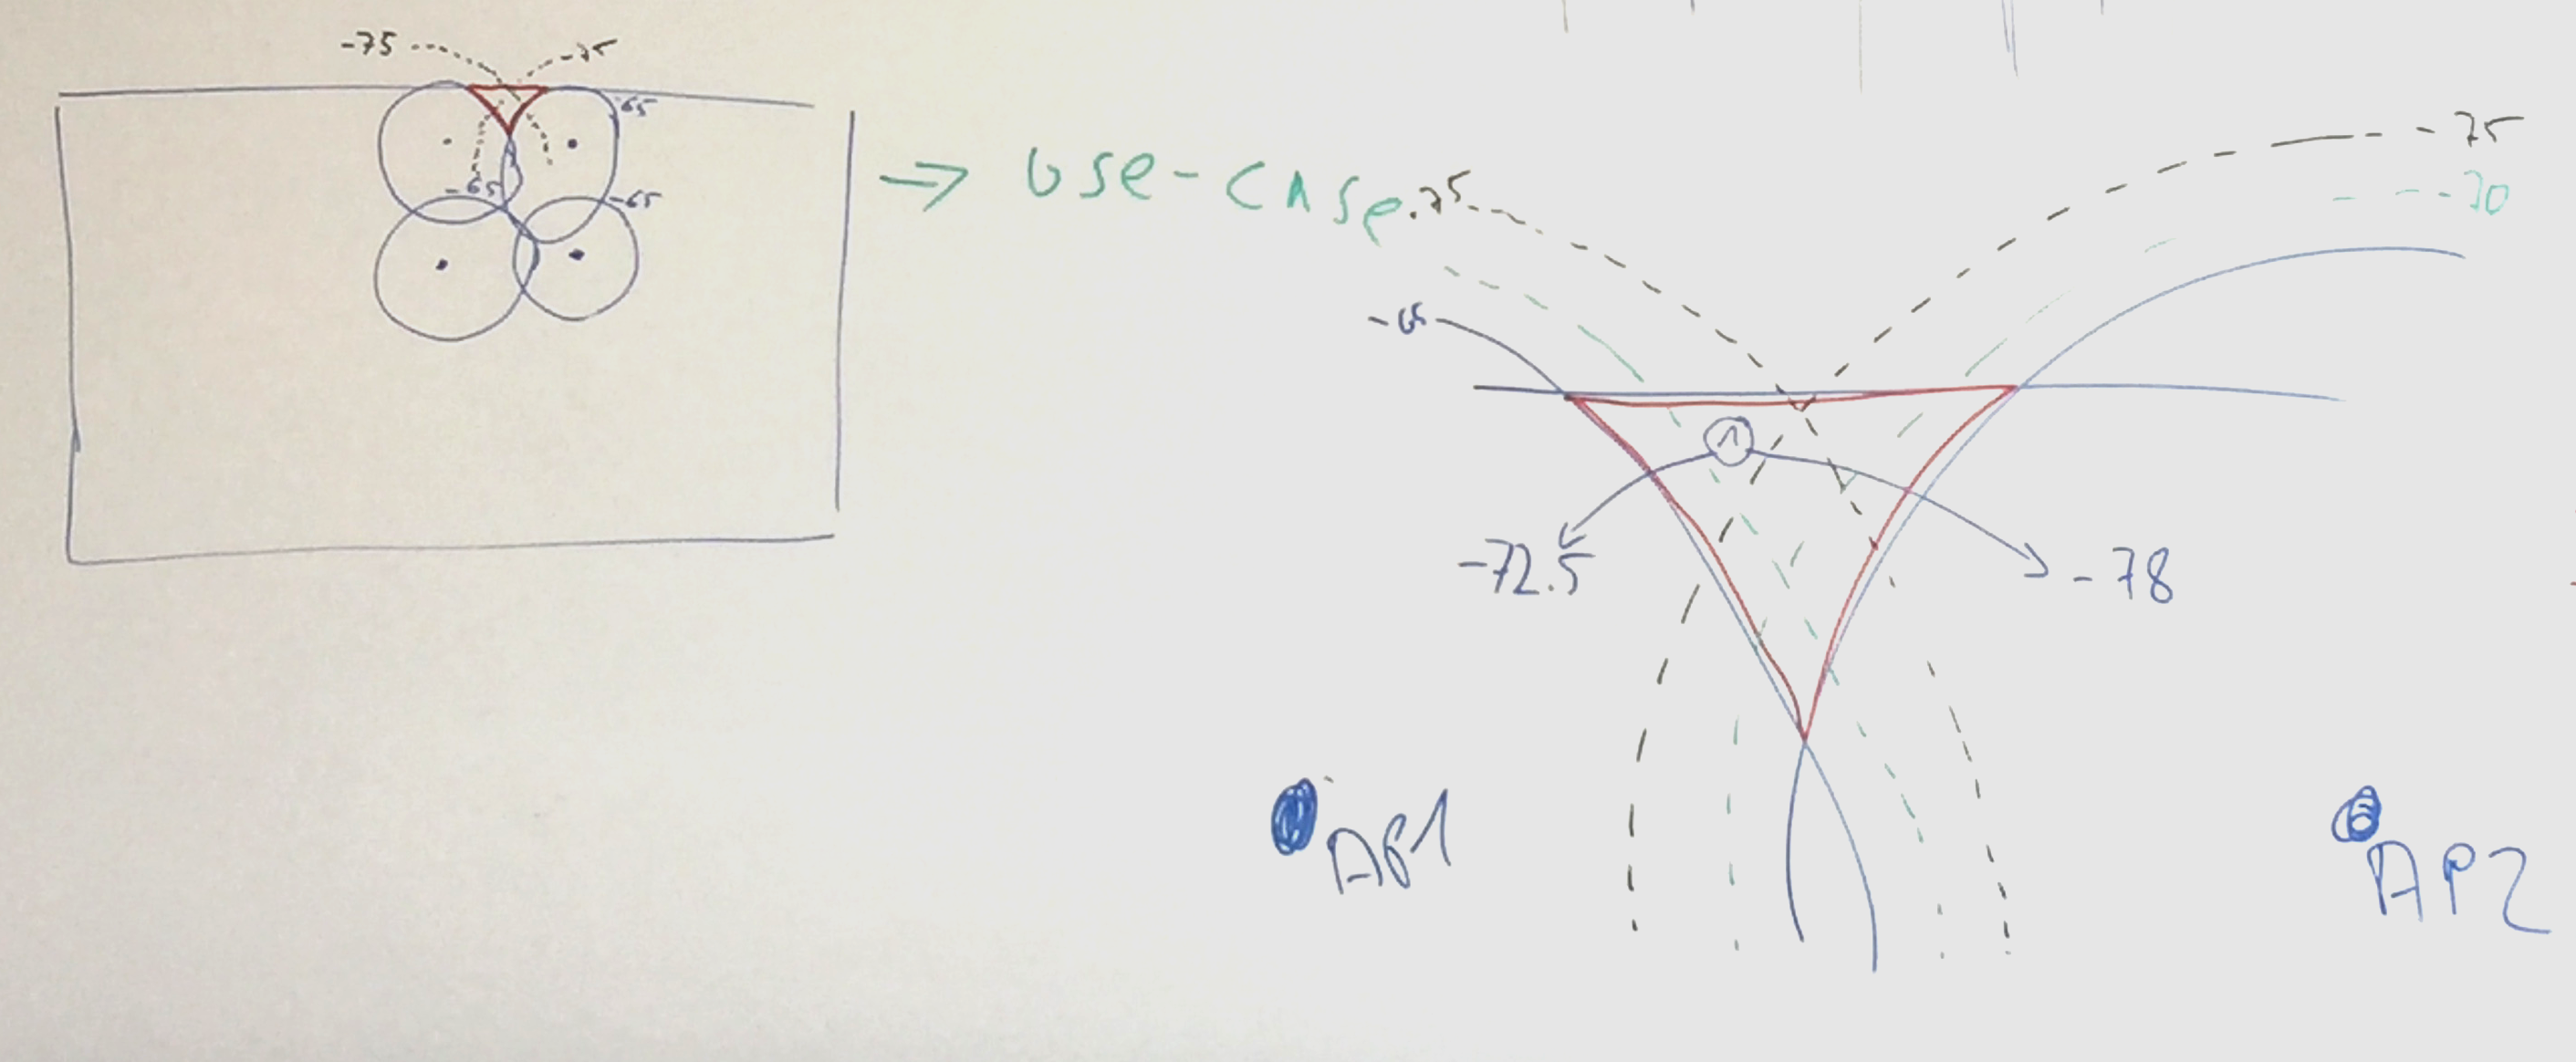 -75
-75
-65
-65
-65
=> use-case
-75
-75
-70
-65
1
-72.5
-78
AP1
AP2